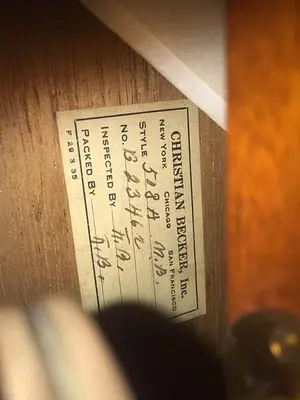 CHRISTIAN BECKER, Inc.
NEW YORK CHICAGO SAN FRANCISCO
STYLE 508A M.B.
No. B23462
INSPECTED BY A.B.
PACKED BY A.B.
F 29 3 35